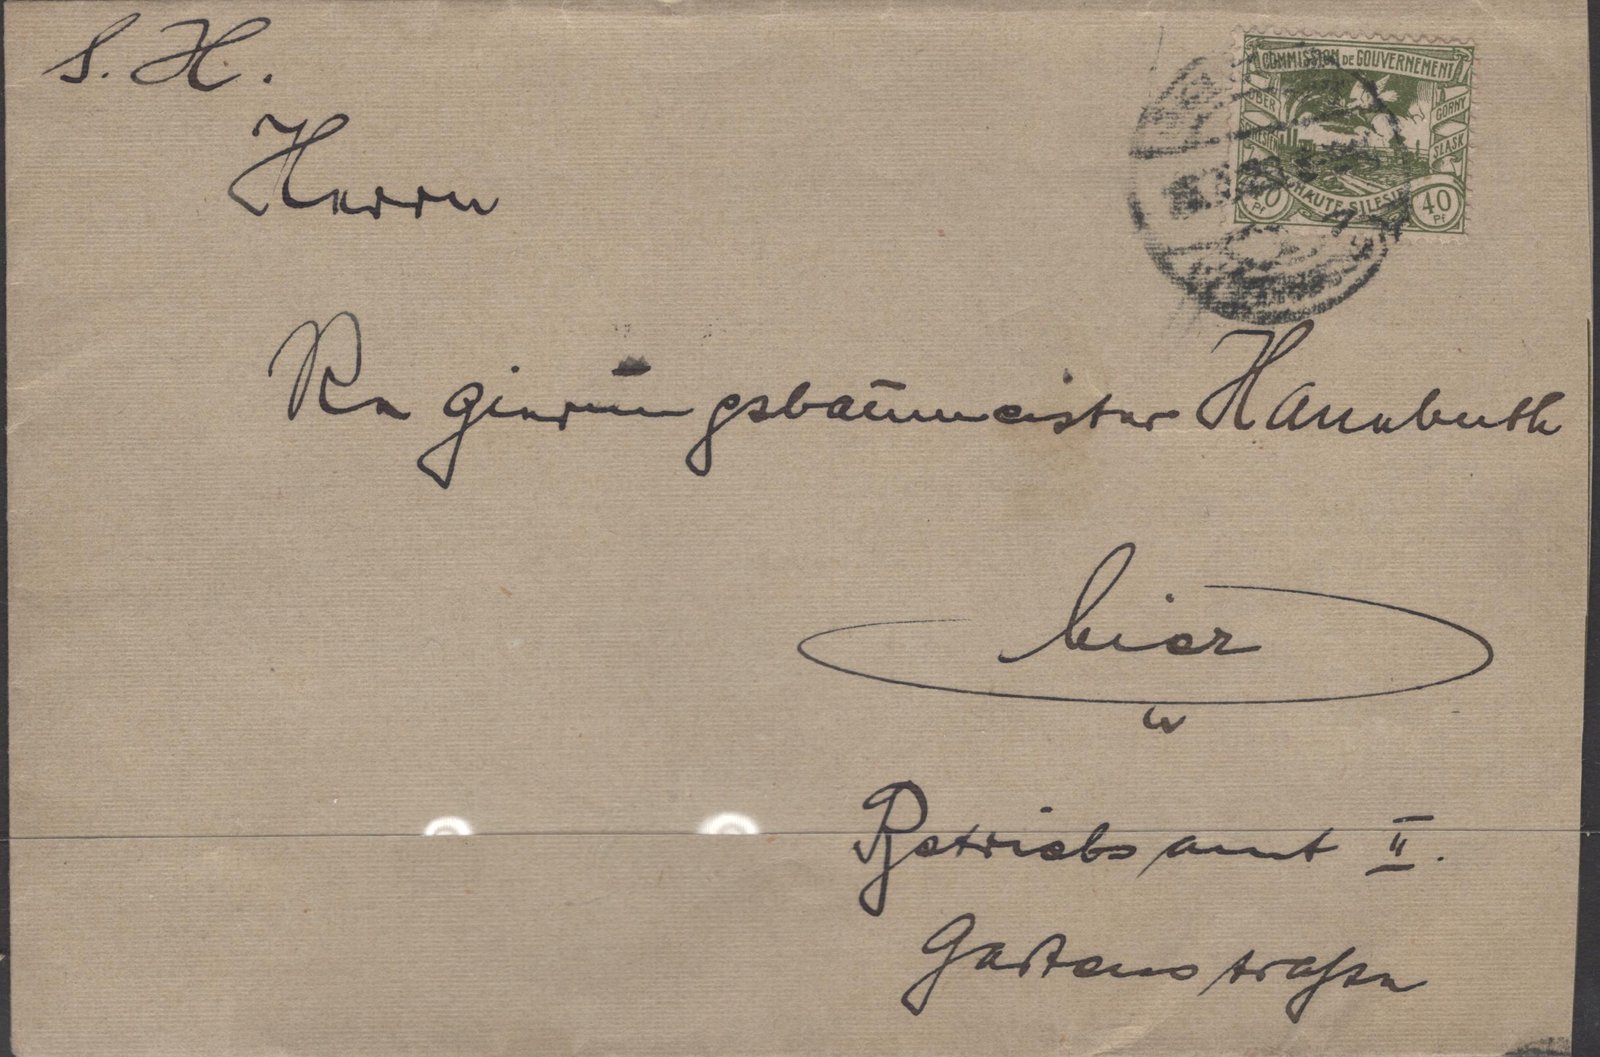 S. H.
Herrn
Regierungsbaumeister Hannebuth
hier
Betriebsamt II.
Gartenstraße
COMMISSION DE GOUVERNEMENT
OBER
GORNY
ŚLĄSK
HAUTE SILESIE
40
Pf
40
Pf